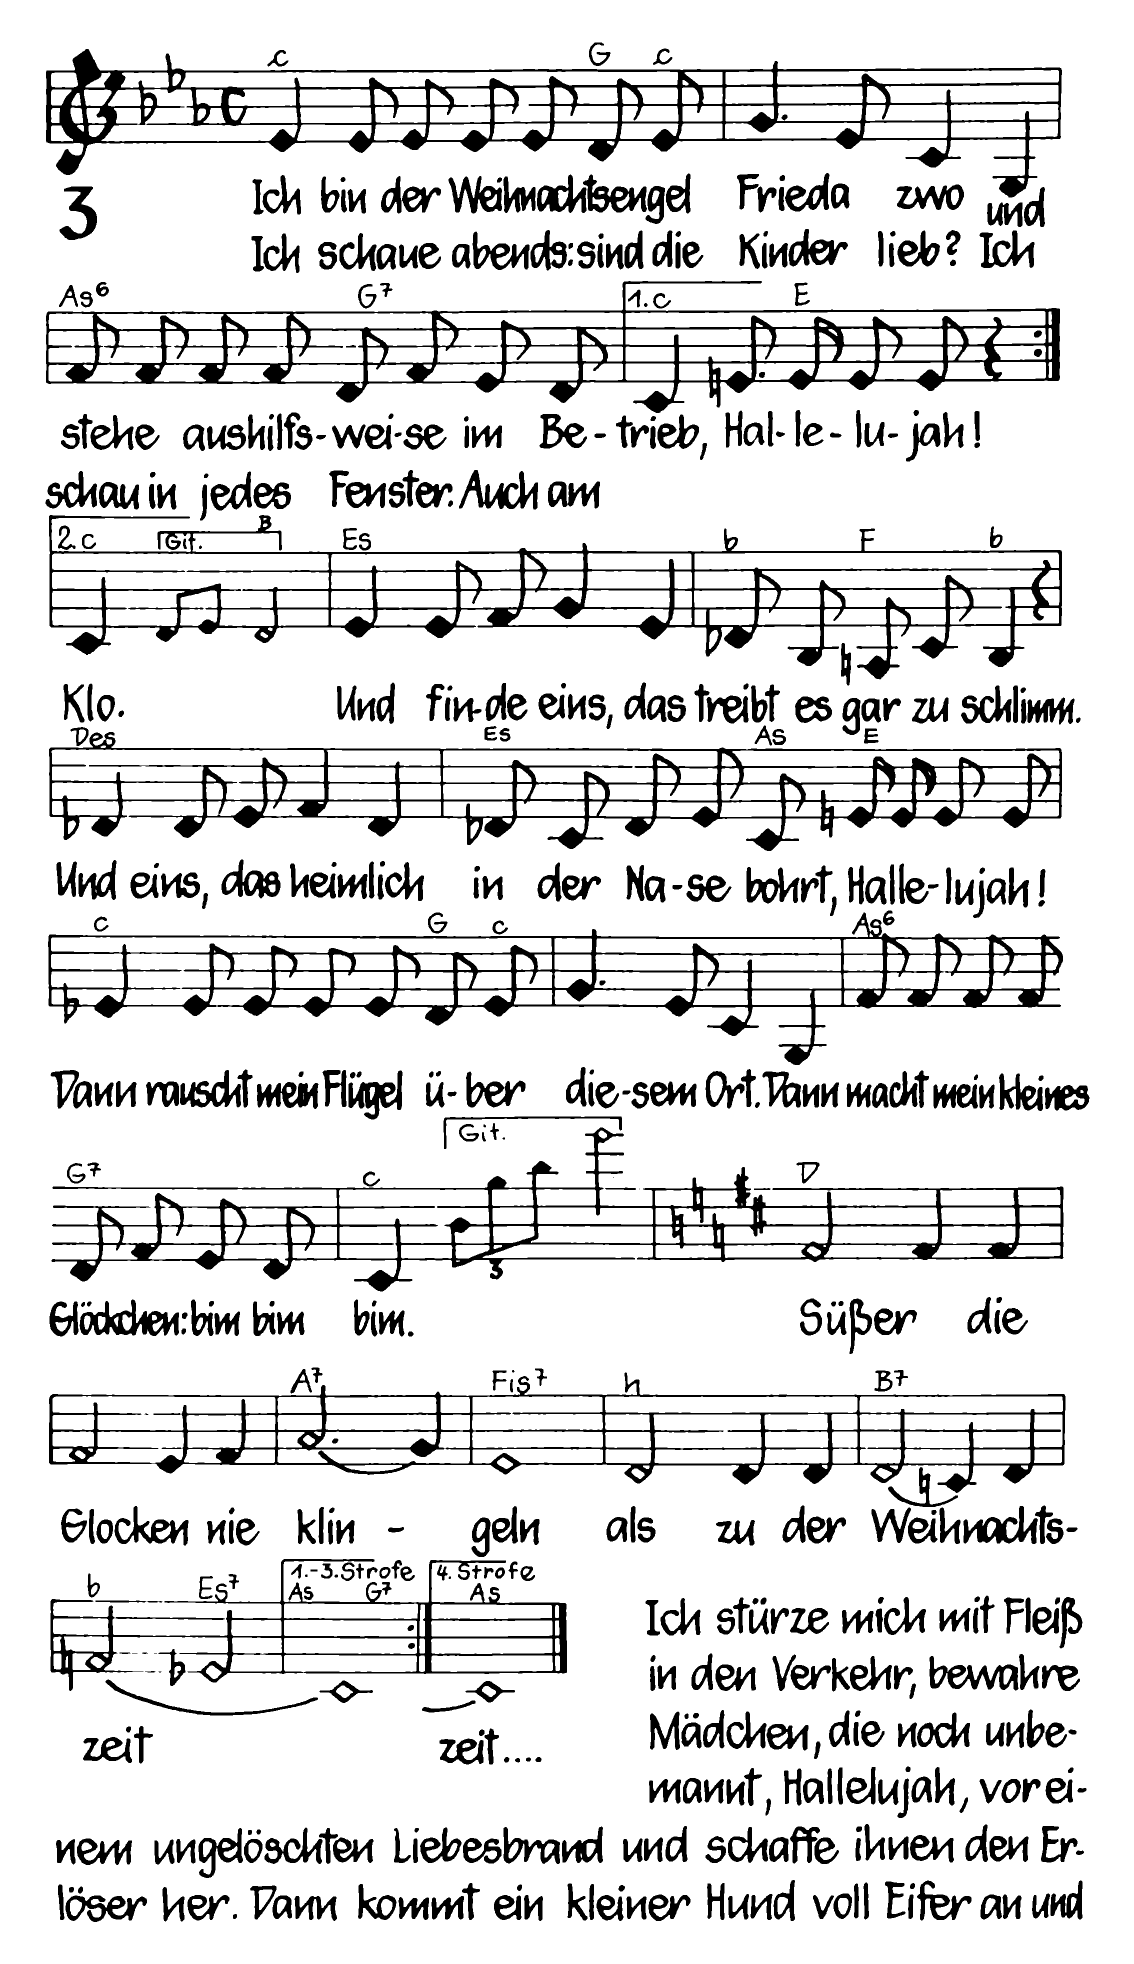 c G c
3
Ich bin der Weihnachtsengel Frieda zwo und
Ich schaue abends: sind die Kinder lieb? Ich
As6 G7 1. c E
stehe aushilfs-wei-se im Be-trieb, Hal-le-lu-jah!
schau in jedes Fenster. Auch am
2. c Git. B Es b F b
Klo. Und fin-de eins, das treibt es gar zu schlimm.
Des Es As E
Und eins, das heimlich in der Na-se bohrt, Halle-lujah!
c G c As6
Dann rauscht mein Flügel ü-ber die-sem Ort. Dann macht mein kleines
G7 c Git. D
3
Glöckchen: bim bim bim. Süßer die
A7 Fis7 h B7
Glocken nie klin - geln als zu der Weihnachts-
b Es7 1.-3. Strofe As G7 4. Strofe As
zeit zeit....
Ich stürze mich mit Fleiß
in den Verkehr, bewahre
Mädchen, die noch unbe-
mannt, Hallelujah, vor ei-
nem ungelöschten Liebesbrand und schaffe ihnen den Er-
löser her. Dann kommt ein kleiner Hund voll Eifer an und